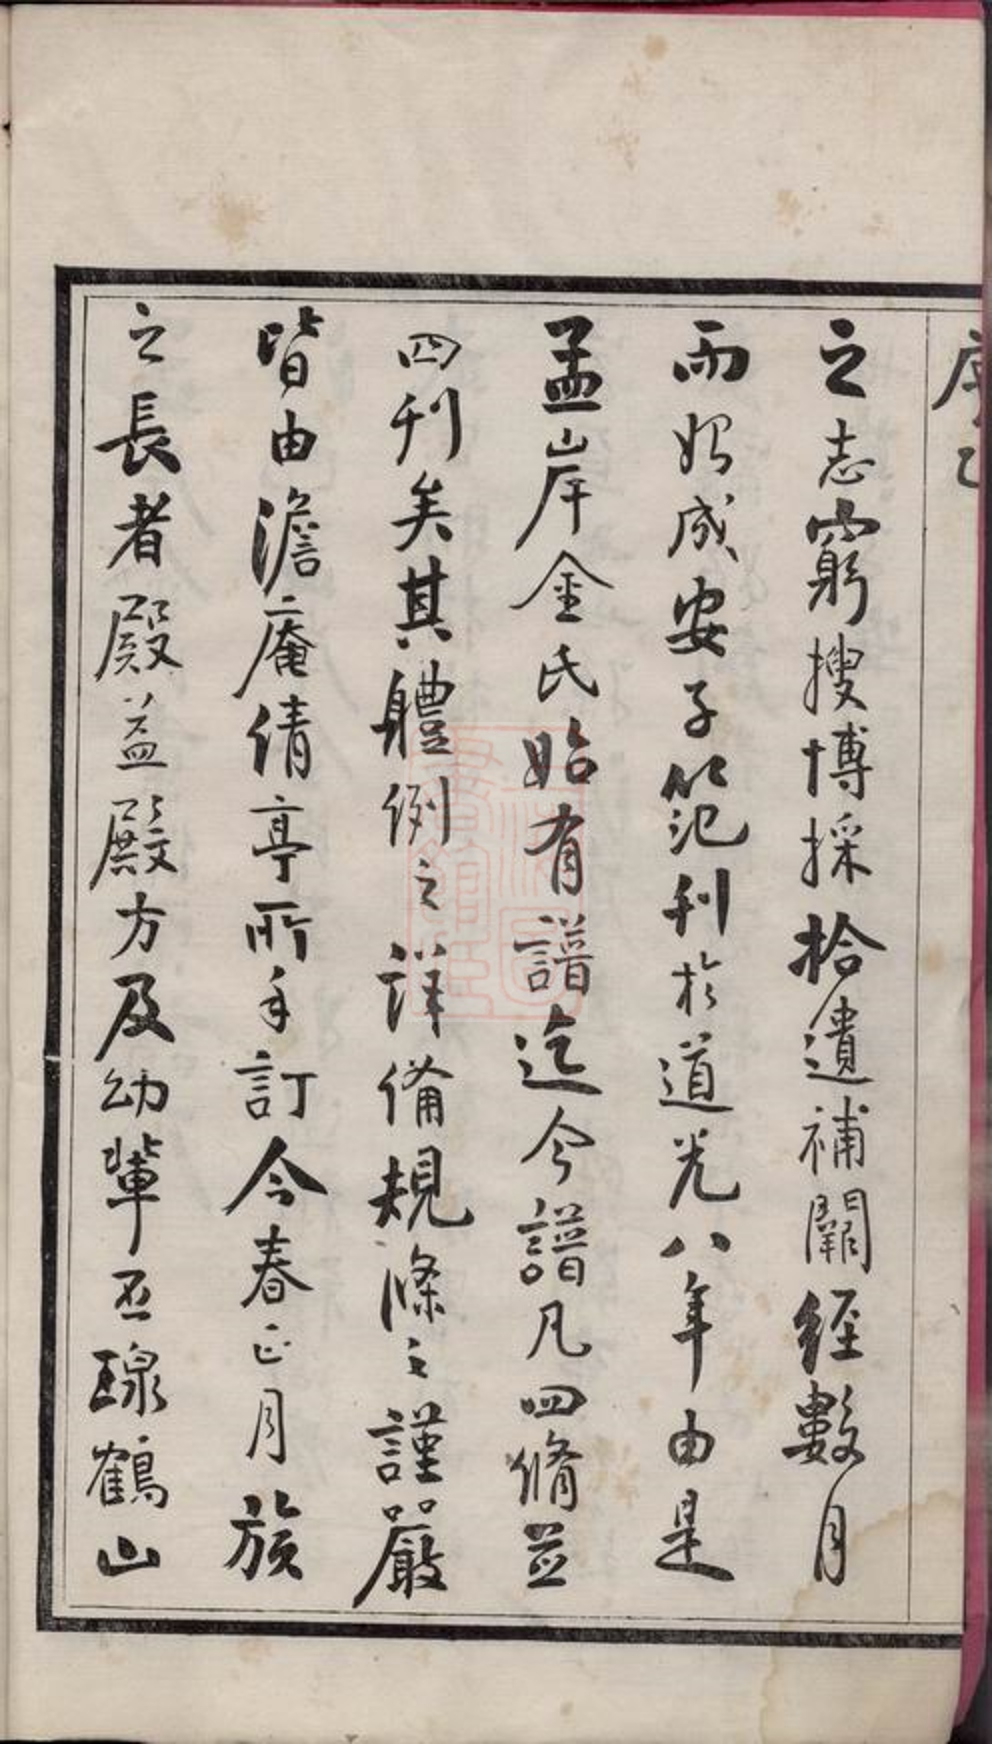 之志窮搜博採拾遺補闕經數月
而始成安子範刊於道光八年由是
孟岸金氏始有譜迄今譜凡四脩並
四刊矣其體例之詳備規條之謹嚴
皆由澹庵倩亭所手訂今春正月族
之長者殿益殿方及幼輩玉線鶴山